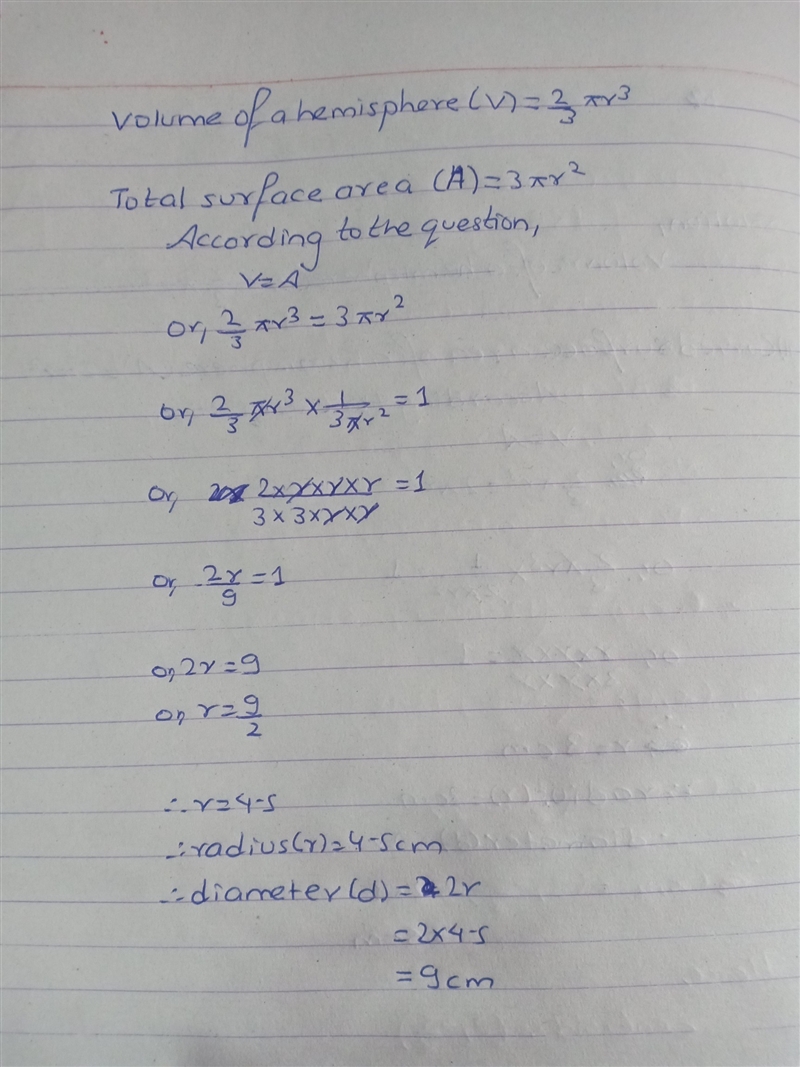 Volume of a hemisphere (V) = 2/3 πr³
Total surface area (A) = 3πr²
According to the question,
V = A
Or, 2/3 πr³ = 3πr²
or, 2/3 πr³ × 1/3πr² = 1
Or, 2×r×r×r/3×3×r×r = 1
or, 2r/9 = 1
or, 2r = 9
or, r = 9/2
∴ r = 4.5
∴ radius (r) = 4.5 cm
∴ diameter (d) = 2r
= 2×4.5
= 9 cm